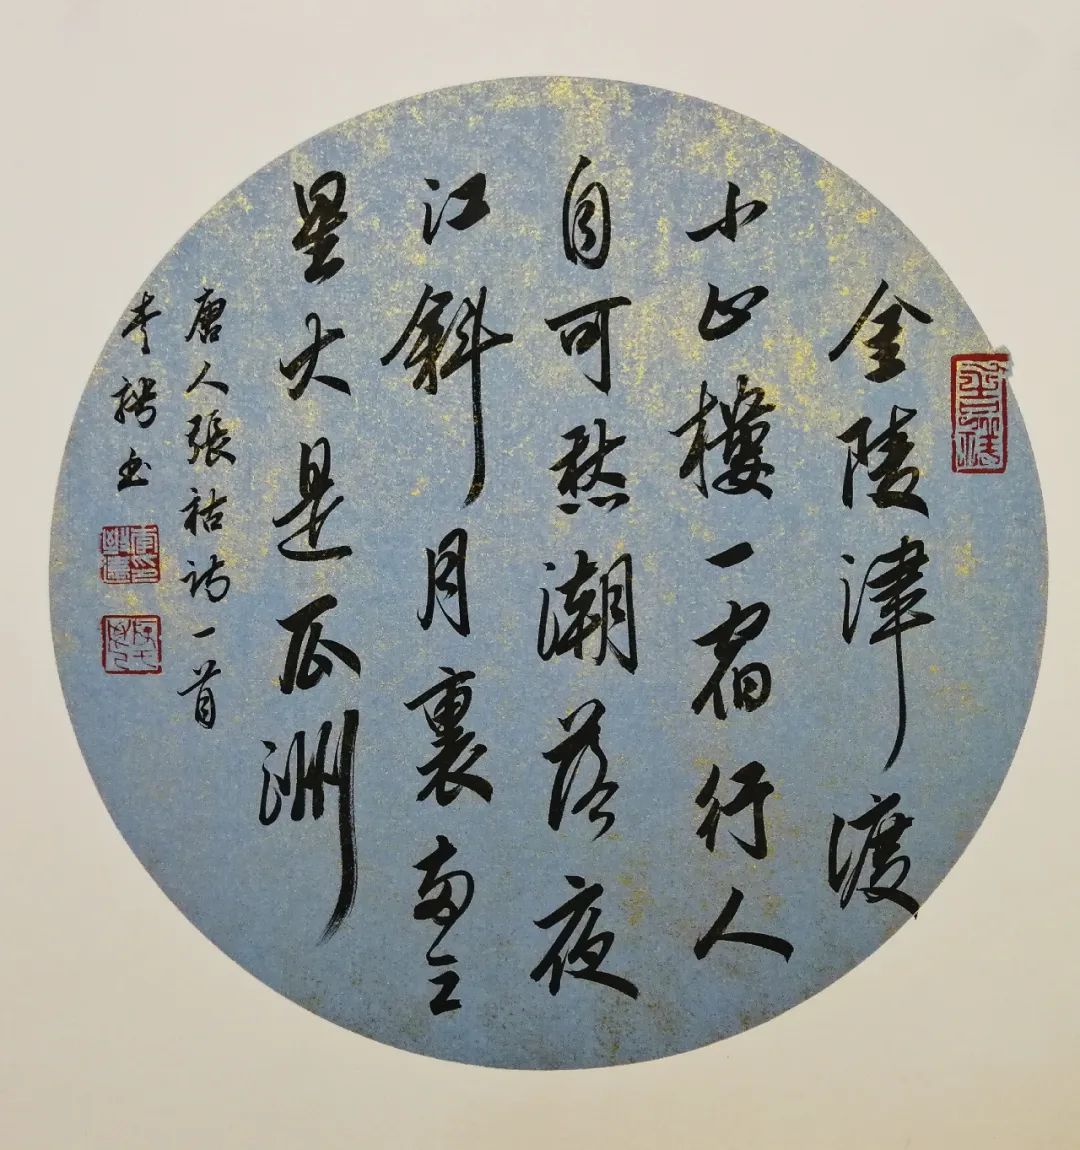 金陵津渡
小山樓一宿行人
自可愁潮落夜
江斜月裏兩三
星火是瓜洲
唐人張祜詩一首
書